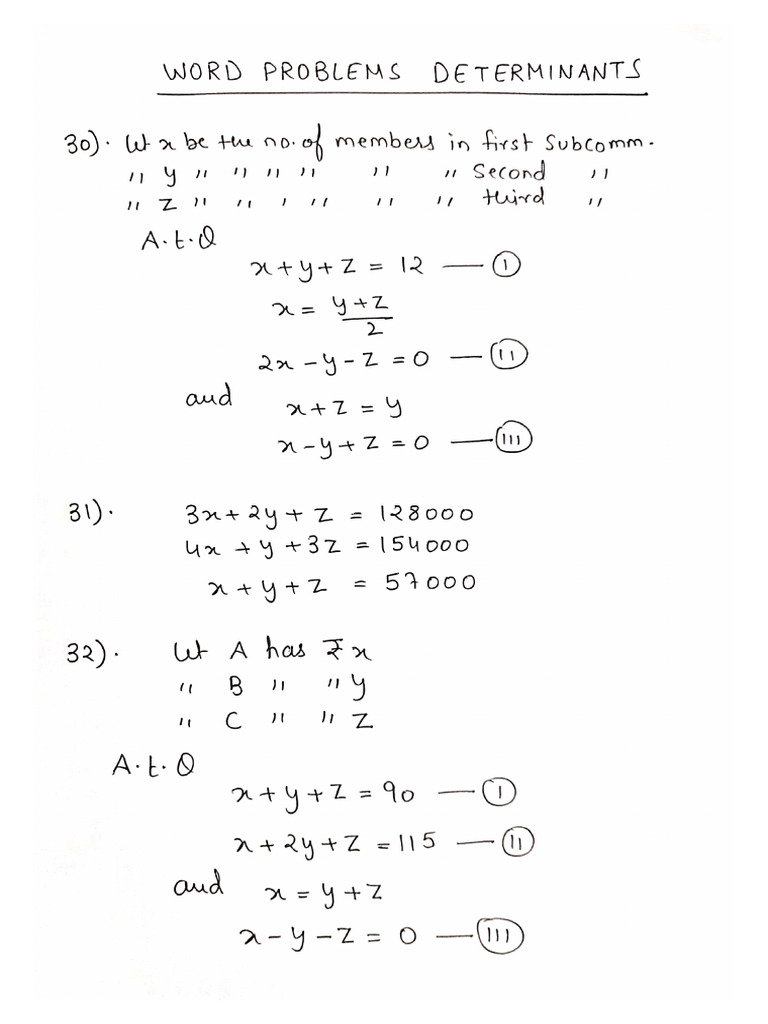 WORD PROBLEMS DETERMINANTS
30). Let x be the no. of members in first Subcomm.
" y " " " " " " Second "
" z " " " " " " third "
A.t.Q
x + y + z = 12 — (I)
x = (y + z)/2
2x - y - z = 0 — (II)
and x + z = y
x - y + z = 0 — (III)
31). 3x + 2y + z = 128000
4x + y + 3z = 154000
x + y + z = 57000
32). Let A has ₹ x
" B " " y
" C " " z
A.t.Q
x + y + z = 90 — (I)
x + 2y + z = 115 — (II)
and x = y + z
x - y - z = 0 — (III)